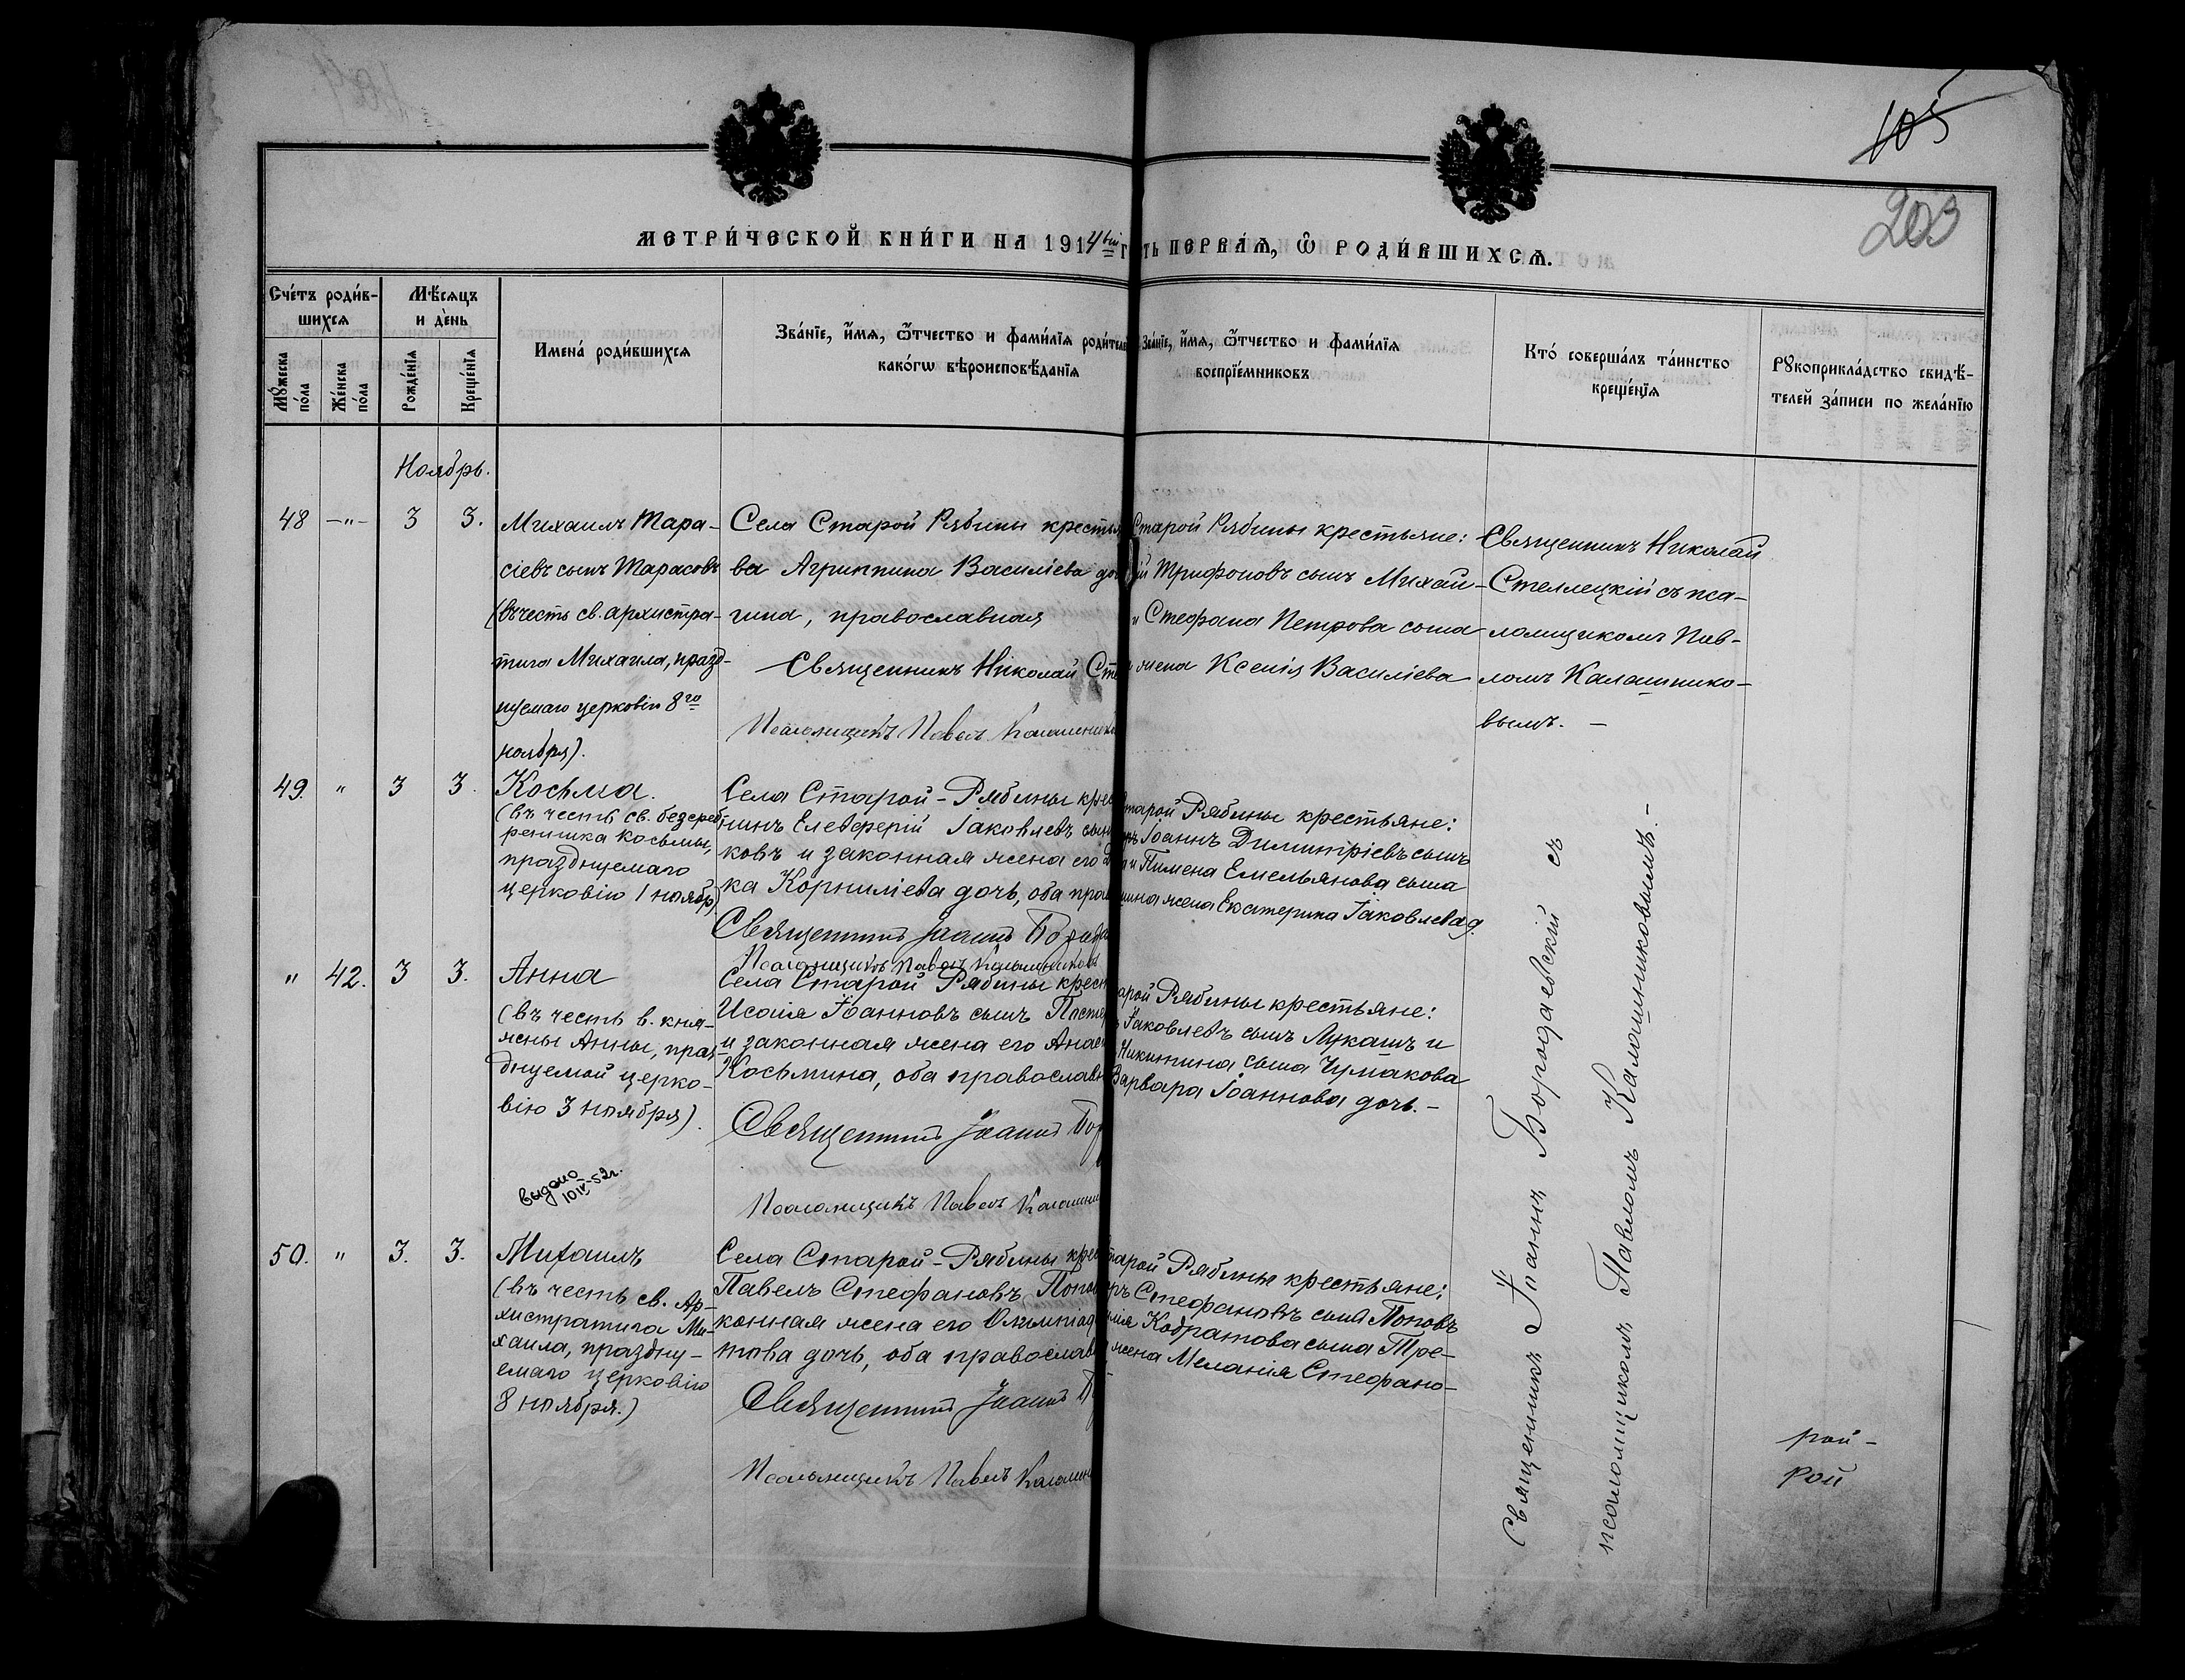 105
203
МЕТРИ́ЧЕСКОЙ КНИ́ГИ НА 1914ый г
ть ПЕРВА́Ѧ, Ѽ РОДИ́ВШИХСѦ.
Сче́тъ роди́в-
шихсѧ
Мꙋ́жеска по́ла
Же́нска по́ла
Мѣ́сѧцъ
и де́нь
Рожде́нїѧ
Креще́нїѧ
Имена́ роди́вшихсѧ
Зва́нїе, и́мѧ, ѻ́тчество и фами́лїѧ роди́теле
како́гѡ вѣроисповѣ́данїѧ
Зва́нїе, и́мѧ, ѻ́тчество и фами́лїѧ
воспрїе́мниковъ
Кто́ соверша́лъ та́инство
креще́нїѧ
Рꙋкоприкла́дство свидѣ́-
телей за́писи по жела́нїю
Ноябрь.
48 —"— 3 3.
Михаилъ Тара-
сіевъ сынъ Тарасовъ
(въ честь св. архистра-
тига Михаила, празд-
нуемаго церковію 8го
ноября).
Села Старой Рябины крестья
ва Агриппина Василіева до
гина, православная
Священникъ Николай Сте
Псаломщикъ Павелъ Калашнико
Старой Рябины крестьяне:
ій Трифоновъ сынъ Михай-
и Стефана Петрова сына
жена Ксенія Василіева
Священникъ Николай
Стеллецкій съ пса-
ломщикомъ Пав-
ломъ Калашнико-
вымъ. —
49. " 3 3.
Косьма.
(въ честь св. безсреб-
ренника Косьмы,
празднуемаго
церковію 1 ноябр)
Села Старой-Рябины крес
нинъ Елевферій Іаковлевъ сын
ковъ и законная жена его
ка Корниліева дочь, оба прав
Священникъ Іоаннъ Борода
Псаломщикъ Павелъ Калашников
тарой Рябины крестьяне:
Іоаннъ Димитріевъ сынъ
и Пимена Емельянова сына
жена Екатерина Іаковлева д.
" 42. 3 3.
Анна
(въ честь в. кня-
жны Анны, праз-
днуемой церко-
вію 3 ноября).
выдано
10 IV-52г.
Села Старой Рябины крест
Исаія Іоанновъ сынъ Пасте
и законная жена его Анас
Косьмина, оба православн
Священникъ Іоаннъ Бор
Псаломщикъ Павелъ Калашни
арой Рябины крестьяне:
Іаковлевъ сынъ Лукашъ и
Никитина сына Чумакова
Варвара Іоаннова дочь. —
50. " 3. 3.
Михаилъ
(въ честь св. Ар-
хистратига Ми-
хаила, праздну-
емаго церковію
8 ноября.)
Села Старой-Рябины крес
Павелъ Стефановъ Попов
конная жена его Олимпіад
това дочь, оба православ
Священникъ Іоаннъ Б
Псаломщикъ Павелъ Калашн
тарой Рябины крестьяне:
Стефановъ сынъ Поповъ
Кодратова сына Тре-
жена Меланія Стефано-
Священникъ Іоаннъ Бородаевскій съ
псаломщикомъ Павломъ Калашниковымъ. —
рай-
рой